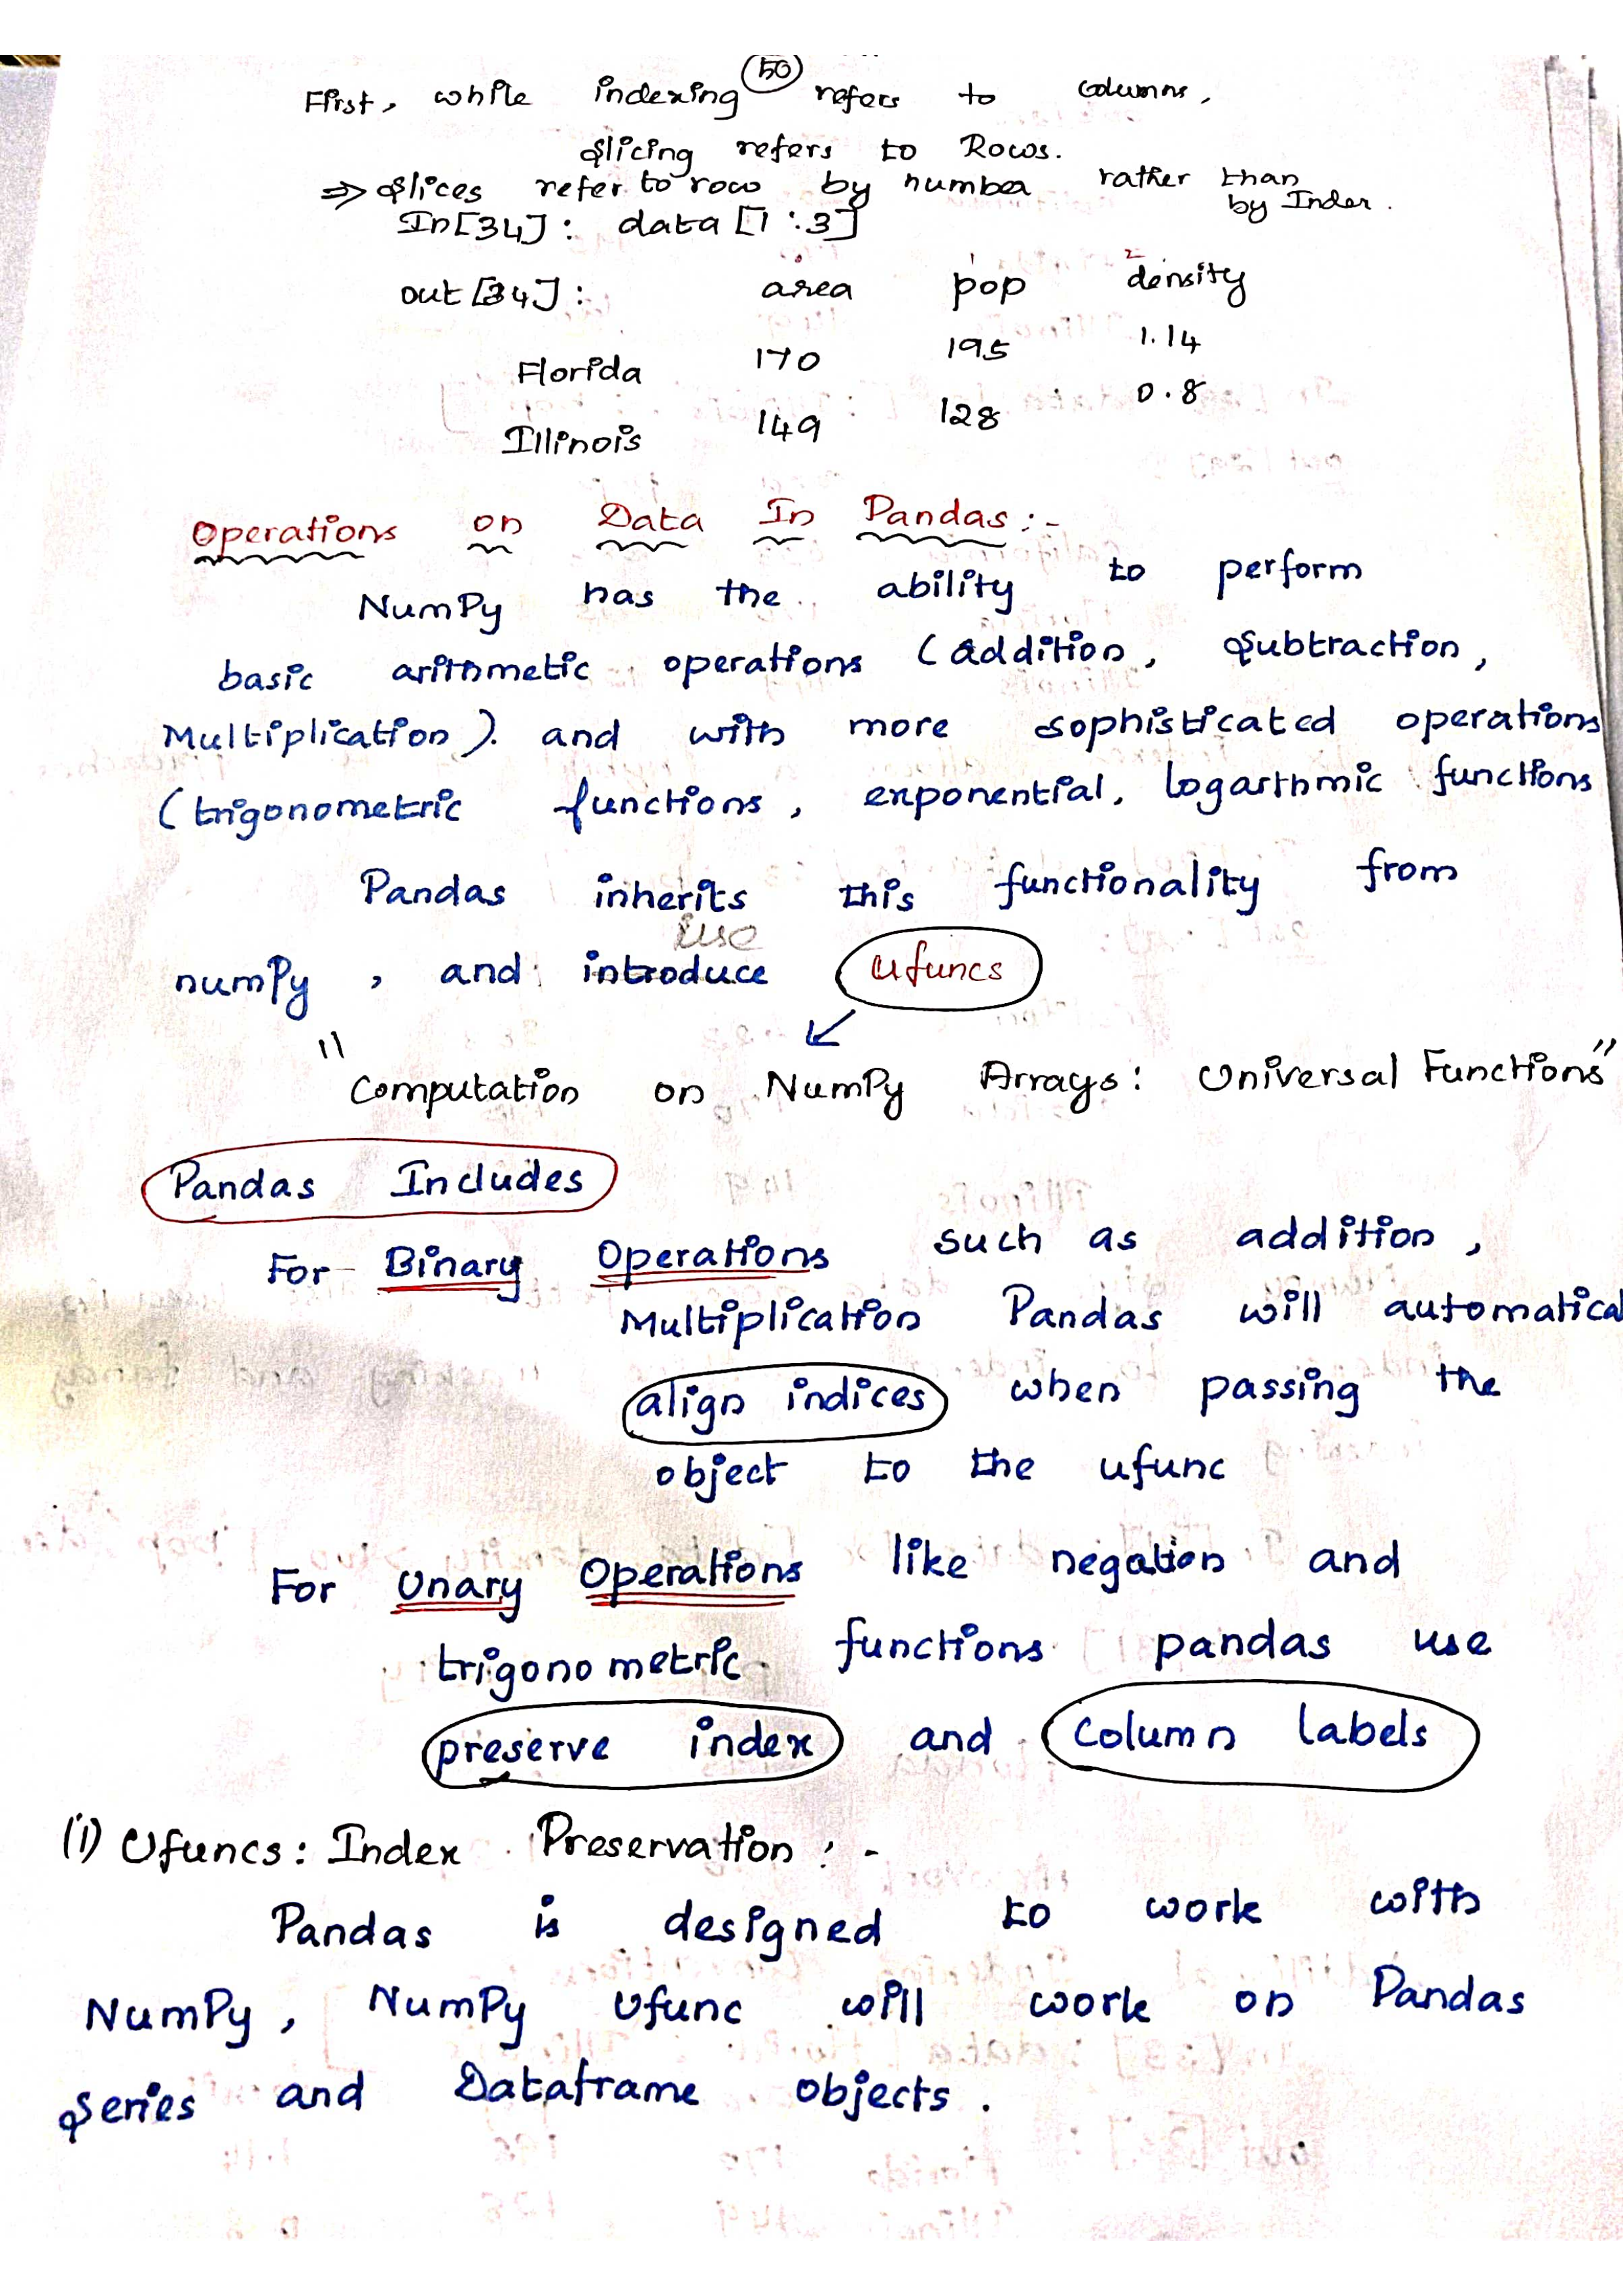 50
First, while indexing refers to columns,
slicing refers to Rows.
⇒ slices refer to row by number rather than
by Index.
In[34]: data [1:3]
out [34]: area pop density
Florida 170 195 1.14
Illinois 149 128 0.8
Operations on Data In Pandas :-
NumPy has the ability to perform
basic arithmetic operations (addition, subtraction,
Multiplication). and with more sophisticated operations
(trigonometric functions, exponential, logarthmic functions
Pandas inherits this functionality from
use
numPy, and introduce ufuncs
"Computation on NumPy Arrays: Universal Functions"
Pandas Includes
For Binary Operations such as addition,
Multiplication Pandas will automatical
align indices when passing the
object to the ufunc
For Unary Operations like negation and
trigonometric functions pandas use
preserve index and column labels
(i) Ufuncs: Index Preservation :-
Pandas is designed to work with
NumPy, NumPy Ufunc will work on Pandas
series and Dataframe objects.